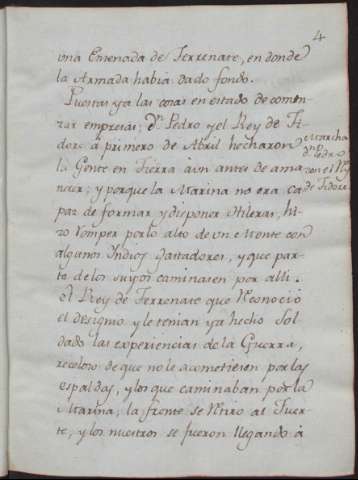 4
una Ensenada de Terrenate, en donde
la Armada havia dado fondo.
Puestas ya las cosas en estado de comen-
zar empresas; Dn. Pedro y el Rey de Ti-
dore à primero de Abril hecharon
la Gente en Tierra aùn antes de ama-
necer; y porque la Marina no era ca-
paz de formar y disponer Hileras, hi-
zo romper por lo alto de un Monte con
algunos Indios Gastadores, y que par-
te de los suyos caminasen por alli.
El Rey de Terrenate que Reconociò
el designio y le tenian ya hecho Sol-
dado las experiencias de la Guerra,
receloso de que no le acometiesen por las
espaldas, y los que caminaban por la
Marina, la frente se retiro al Fuer-
te, y los nuestros se fueron llegando à
Marcha
Dn. Pedro
con el Rey
de Tidore